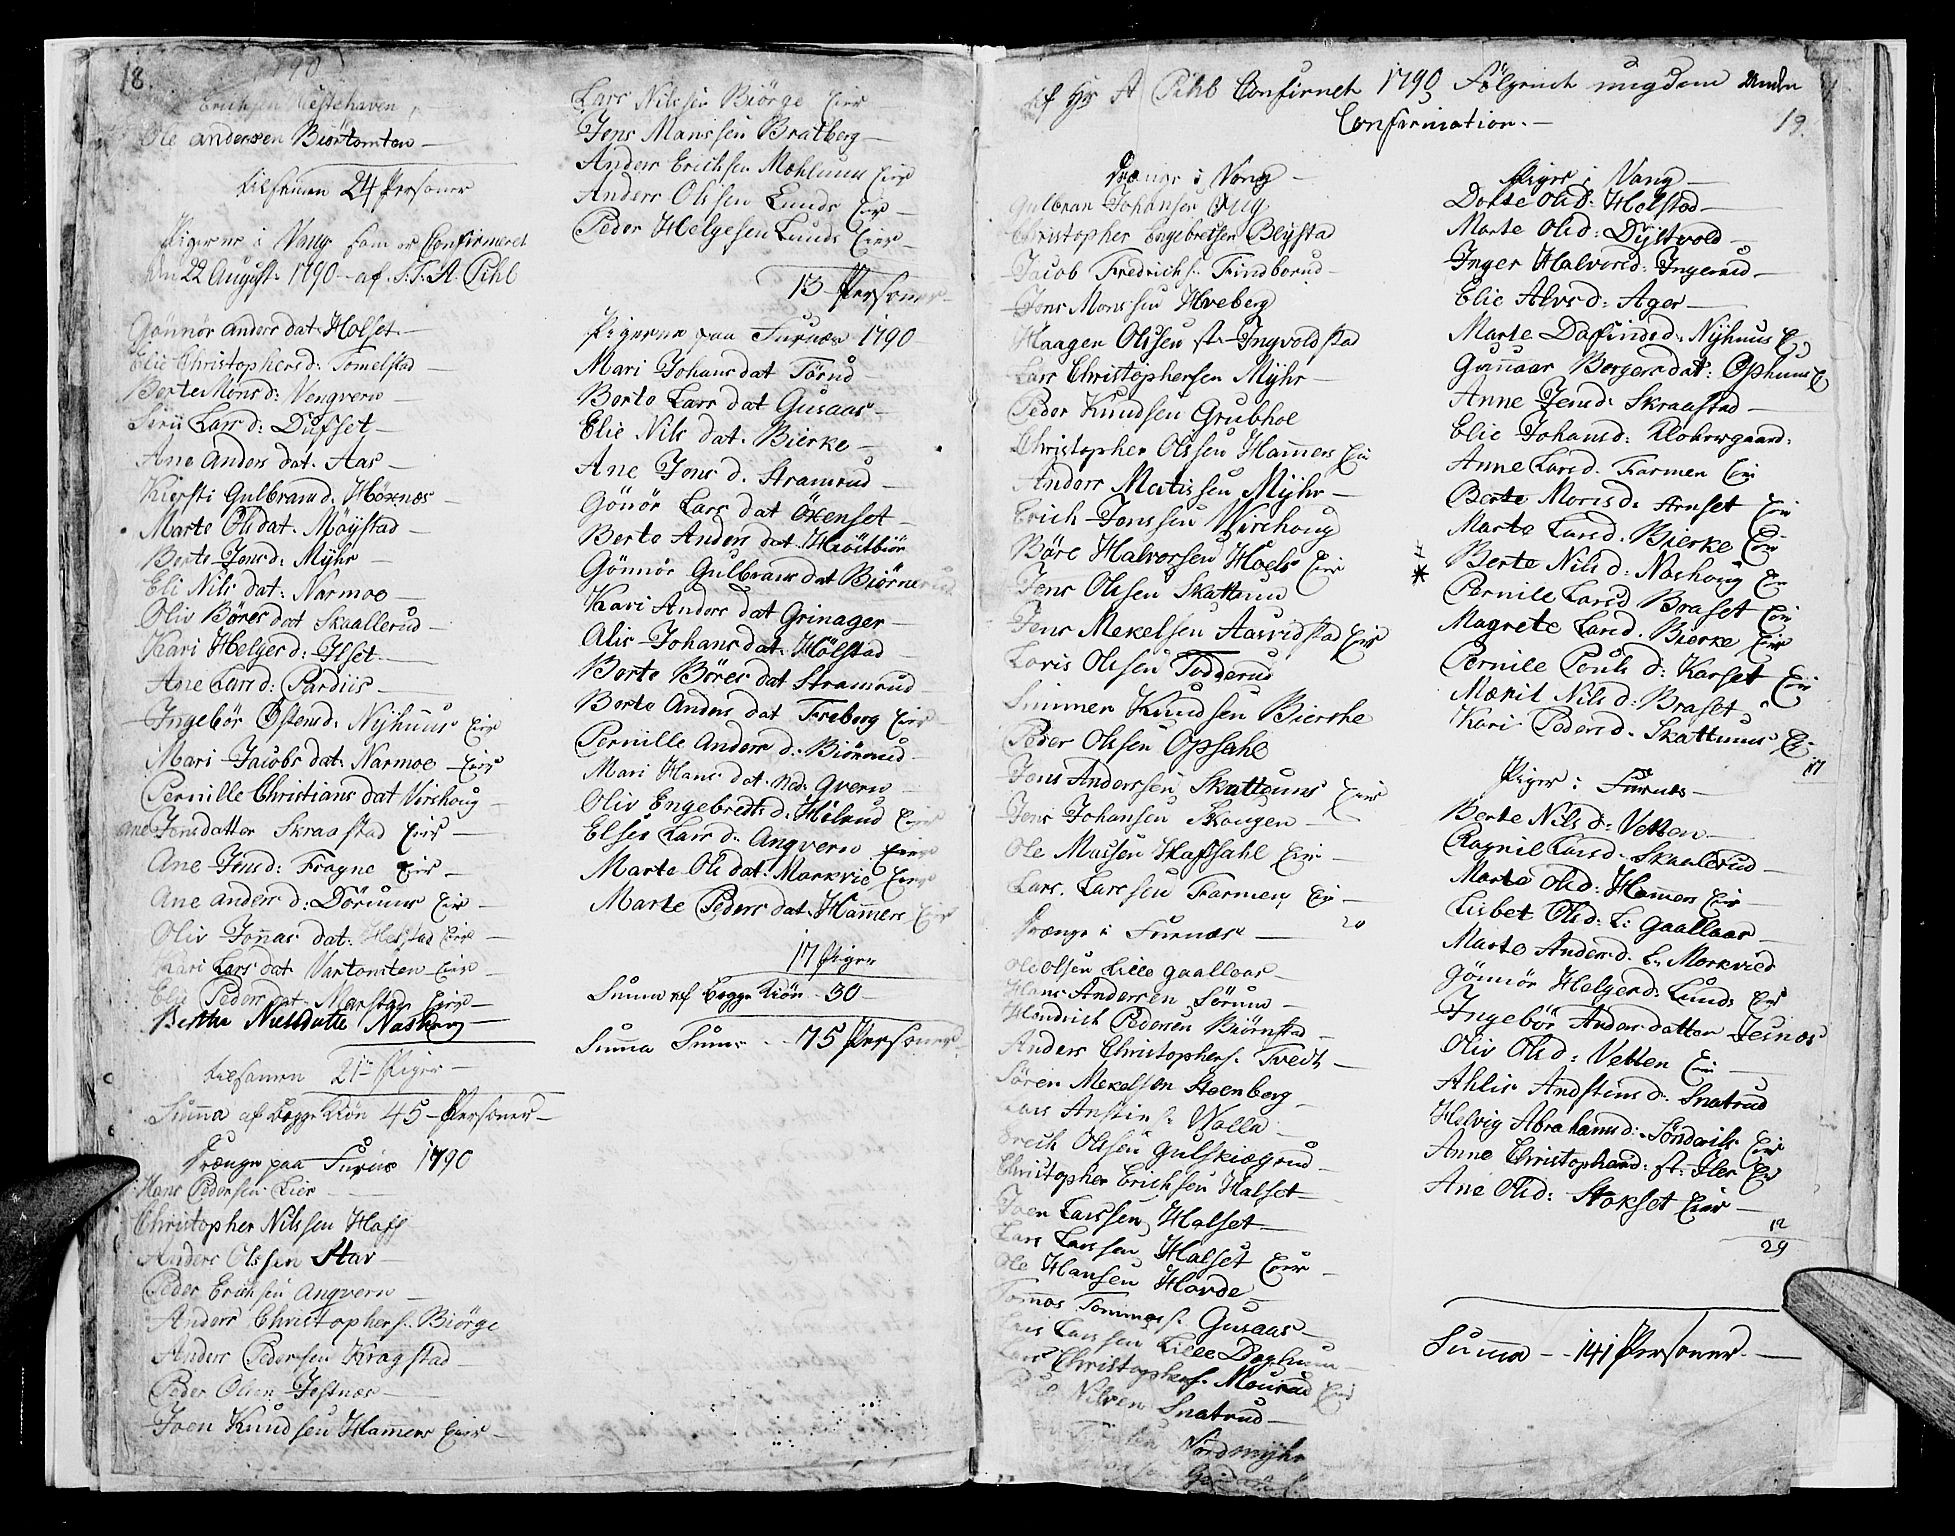 18.
1790
Erichsen Westehaven
Ole andersen Biörtomten
tilsamen 24 Personer
Pigerne i Vang som er Confirmeret
den 22 August. 1790 af S: T: A. Pihl
Gönnör anders dat. Holset
Elie Christophersd: Tomelstad
Berte Monsd: Vengvern
Sirii Larsd: Dufset
Ane Anders dat. Aas
Kiersti Gulbrands. Höxnæs
Marte Oli dat. Möystad
Berte Jensd: Myhr
Eli Nils dat: Narmoe
Oliv Böres dat Skaallerud
Kari Helgesd: Ilset
Ane Larsd: Pardiis
Ingebör Östensd: Nyhuus Eier
Mari Jacobs dat: Narmoe Eier
Pernille Christians dat Virshoug
ane Jensdatter Skraastad Eier
Ane Jensd: Fragne Eier
Ane andersd: Dörum Eier
Oliv Jonnas dat: Helstad Eier
Kari Lars dat. Vartomten Eier
Elie Peders dat. Marstad Eier
Berthe Nielsdatte Naskoug
tilsamen 21 Piger
Summa af begge Kiön 45 Personer
Drænge paa Furnæs 1790
Hans Pedersen Lier
Christopher Nilssen Haff
Anders Olssen Stav
Peder Erichsen Angvern
Anders Christophers. Biörge
Anders Pedersen Kragstad
Peder Olsen Jestnæs
Joen Knudsen Hammers Eier
Lars Nilssen Biörge Eier
Jens Manssen Bratberg
Anders Erichsen Mohluun Eier
Anders Olssen Lunds Eier
Peder Helgesen Lunds Eier
13 Personer
Pigerne paa Furnæs 1790
Mari Johans dat Törud
Berte Lars dat Gusaas
Elie Nils dat. Bierke
Ane Jens d. Stramrud
Gönör Lars dat Öxenset
Berte Anders dat Hköilbiör
Gönnör Gulbrans dat Biörnerud
Kari Anders dat Grinager
Alis Johans dat. Hölstad
Berte Böres dat Stramrud
Berte Anders dat Freberg Eier
Pernille Anders d. Biörnerud
Mari Hans dat. Ned: Qvern
Oliv Engebretsd. Hölrud Eier
Elsie Lars d. Angvern Eier
Marte Oli dat. Markvie Eier
Marte Peders dat. Hammers Eier
17 Piger
Summa af begge Kiön 30
Summa Sum 75 Personer
Af Hr A Pihl Confirmet 1790 Fölgende ungdom
Confirmation.
19.
Drænge i Vang
Gulbran Johansen
Christopher Engebretsen Blystad
Jacob Fredrichs. Findborud
Jens Monssen Hveberg
Haagen Olssen st. Ingvoldstad
Lars Christophersen Myhr
Peder Knudsen Grubhol
Christopher Olssen Hammers Eier
Anders Matissen Myhr
Erich Jenssen Virshoug
Böre Halvorsen Hoels Eier
Jens Olssen Skattum
Jens Mekelsen Aasvidstad Eier
Loris Olssen Todderud
Simmen Knudsen Bierche
Peder Olssen Opsahl
Jens Anderssen Skattums Eier
Jens Johansen Skougen
Ole Massen Hafssahl Eier
Lars Larssen Farmen Eier
20
Drænge i Furnæs
Ole Olsen Lille Gaallaas
Hans Andersen Sörum
Hendrich Pedersen Biörnstad
Anders Christophers. Tvedt
Sören Mekelsen Steenberg
Lars Anstins: Walla
Erich Olssen Gulskiægrud
Christopher Erichsen Halset
Joen Larssen Halset
Lars Larssen Halset Eier
Ole Hansen Horde
Tommas Tommass. Gusaas
Lars Larssen Lille Doghuun
Lars Christophers. Mourud Eier
Nilsen Snatrud
Nordmyhr
Piger i Vang
Dorte Olid: Holstad
Marte Olid: Dystvold
Inger Halvorsd: Ingerud
Elie Alvsd: Ager
Marte Dafindsd: Nyhuus E
Gunnaar Bergers dat: Ophuus E
Anne Jensd. Skraastad
Elie Johansd: Klokergaard:
Anne Larsd. Farmen Eier
Berte Morisd: Arnset Eier
Marte Larsd. Bierke Eier
Berte Nilsd: Naskoug Ei
Pernille Larsd Braset Eier
Magrete Larsd. Bierke Eier
Pernile Pouls d: Karset Eier
Marit Nilsd: Braset
Kari Pedersd. Skattuus Ei
17
Piger i Furnæs
Berte Nilsd: Vetten
Ragnil Larsd. Skaalerud
Marte Olid: Hammers Eier
Lisbet Olsd: L: Gaallaas
Marte Andersd. L. Markvied
Gönnör Helgesd: Lunds Ei
Ingebör Anders datter Jesnæs
Oliv Olsd: Vetten Eier
Ahlis Andstensd. Snatrud
Helvig Abrahamsd: Sönderli Eier
Anne Christophersd: st: Iler Ei
Ane Olid: Stokset Eier
12
29
Summa 141 Personer.